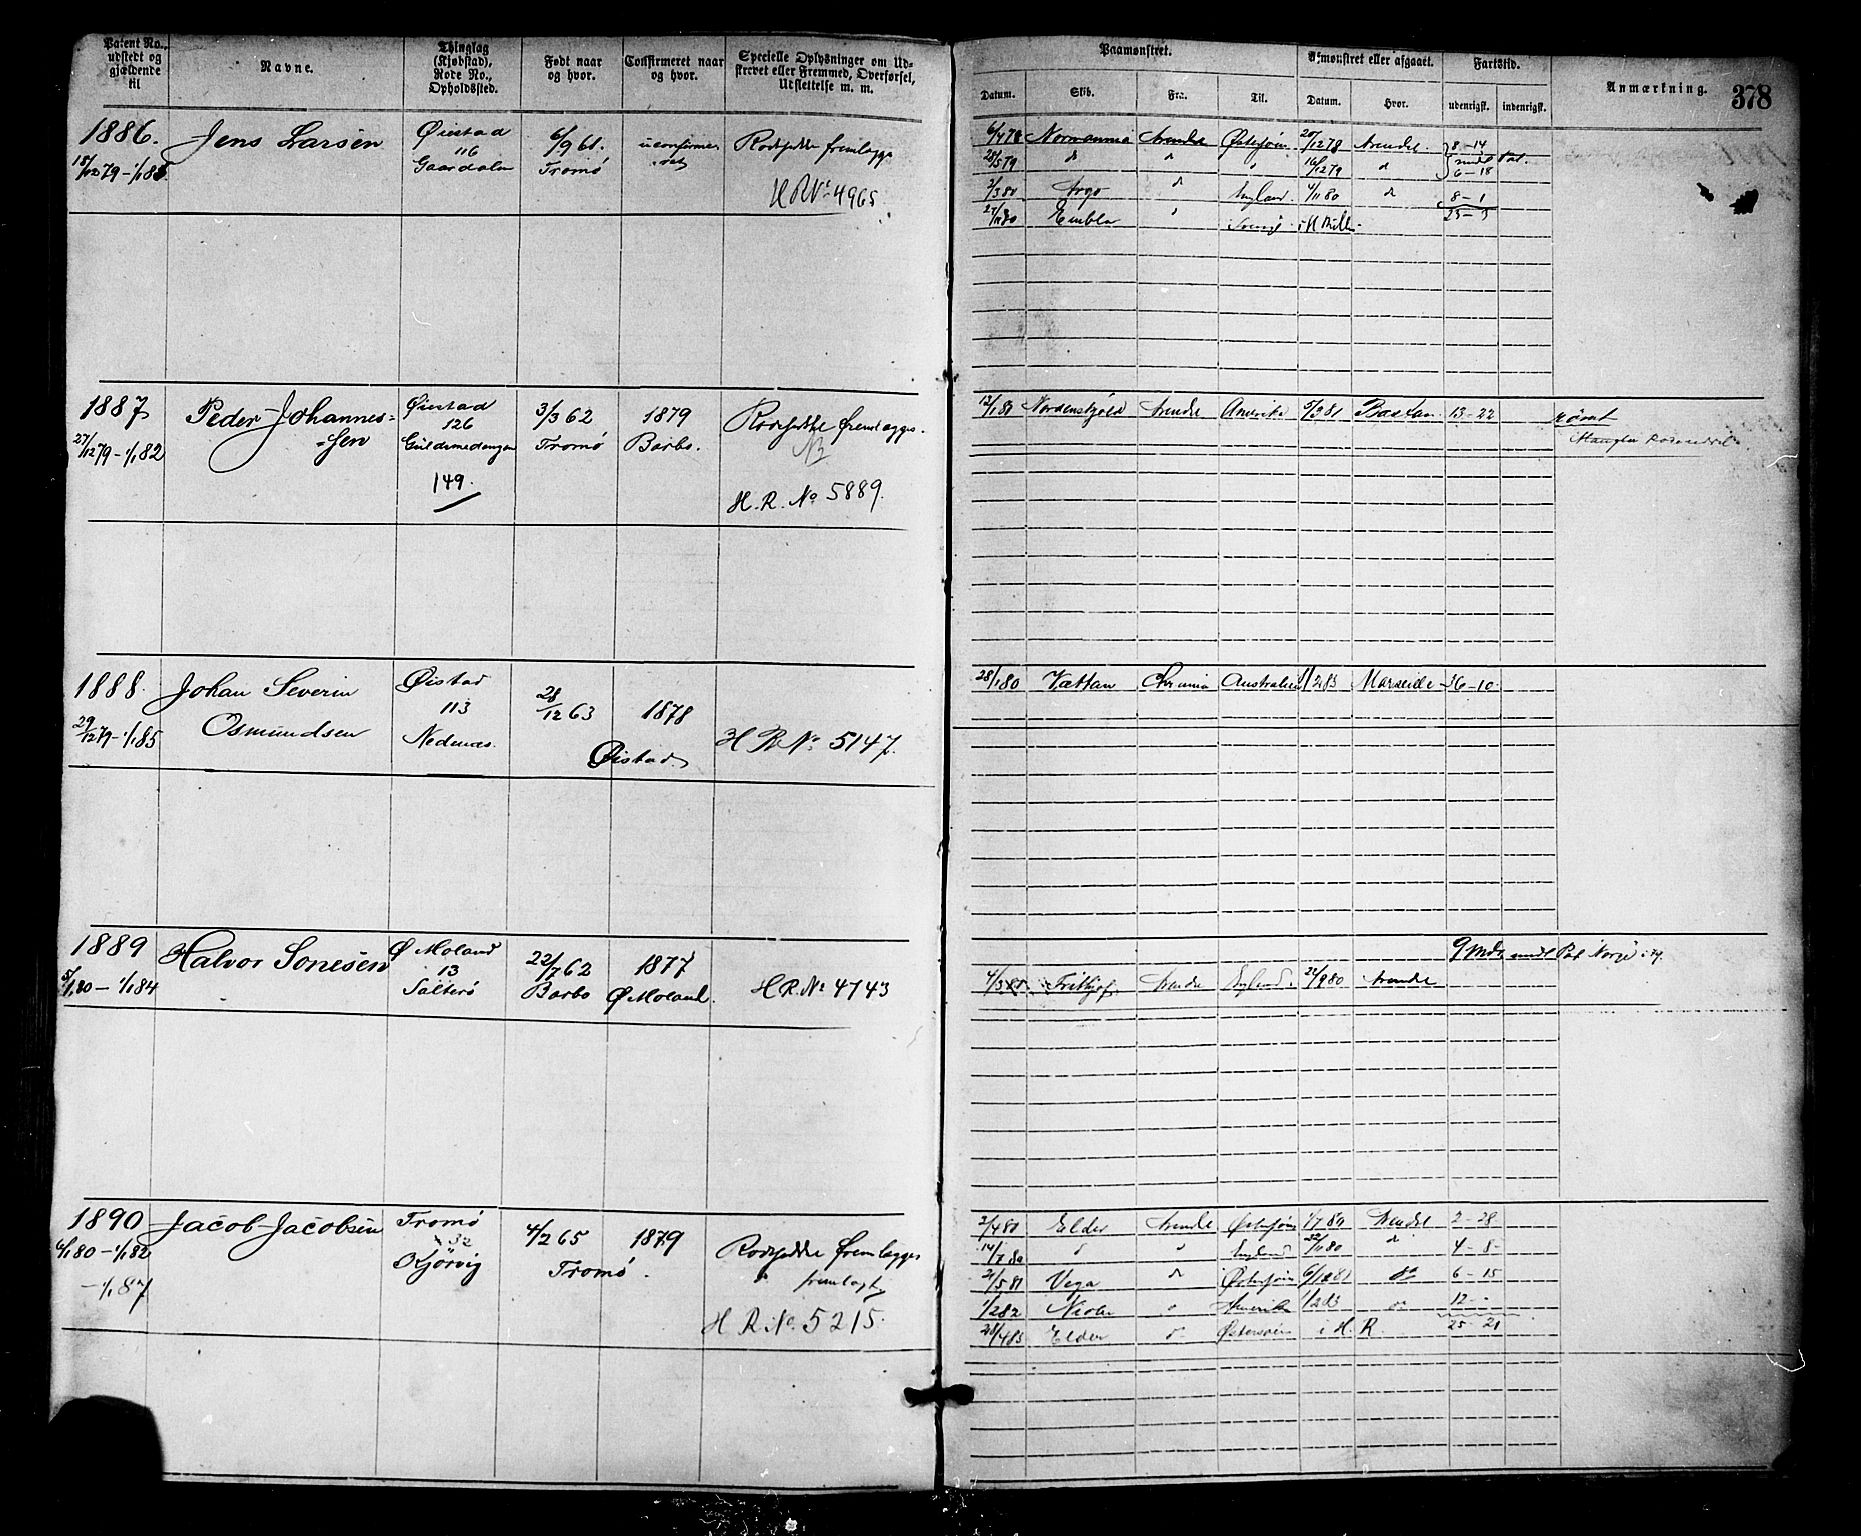 Patent No., udstedt og gjældende til
Navne.
Thinglag (Kjøbstad), Rode No., Opholdssted.
Født naar og hvor.
Confirmeret naar og hvor.
Specielle Oplysninger om Udskrevet eller Fremmed, Overførsel, Udslettelse m. m.
Paamønstret.
Afmønstret eller afgaaet.
Fartstid.
Anmærkning.
378
Datum.
Skib.
Fra.
Til.
Datum.
Hvor.
udenrigsk.
indenrigsk.
1886.
15/12 79 - 1/1 85
Jens Larsen
Øiestad
116
Gaardalen
6/9 61.
Tromø
uconfirmeret
Rodesedde fremlagges
H R No 4965
6/4 78 Normannia Arendal Østersøen 20/12 78 Arendal 8 - 14
28/5 79 d d " 16/12 79 d 6 - 18
2/3 80 Argo d England 4/11 80 d 8 - 1
27/11 80 Embla 25 - 3
1887
27/12 79 - 1/1 82
Peder Johannes=
=sen
Øiestad
126
149.
3/3 62
Tromø
1879
Barbo.
Rodesedde fremlagges.
H. R. No 5889.
12/1 80 Nordenskjold Arendal Amerika 5/3 81 Boston 13 - 22
1888.
29/12 79 - 1/1 85
Johan Severin
Osmundsen
Øistad
113
Nednæs.
28/12 63
1878
Øistad
H R No 5147.
28/1 80 Vattan Chrania Australien 1/2 83 Marseille 36 - 10
1889
5/1 80 - 1/1 84
Halvor Sonesen
Ø Moland
13
Salterø
22/7 62
Barbo
1877
Ø Moland.
H R. No 4743
9 Mdr
4/3 80 Frithjof Arendal England. 22/9 80 Arendal
1890
6/1 80 - 1/1 82
- 1/1 87
Jacob Jacobsen
Tromø
32
Kjørvig
4/2 65
Tromø
1879
Rodesedde fremlagges
fremlagt
H R. No. 5215.
2/4 80 Elder Arendal Østersøen 1/7 80 Arendal 2 - 28
14/7 80 d d England 22/11 80 d 4 - 8
21/5 81 Vega d Østersøen 6/12 81 do 6 - 15
1/2 82 d Amerika 1/2 83 do 12 -
28/4 83 Elder d Østersøen i H. R. 25 - 21